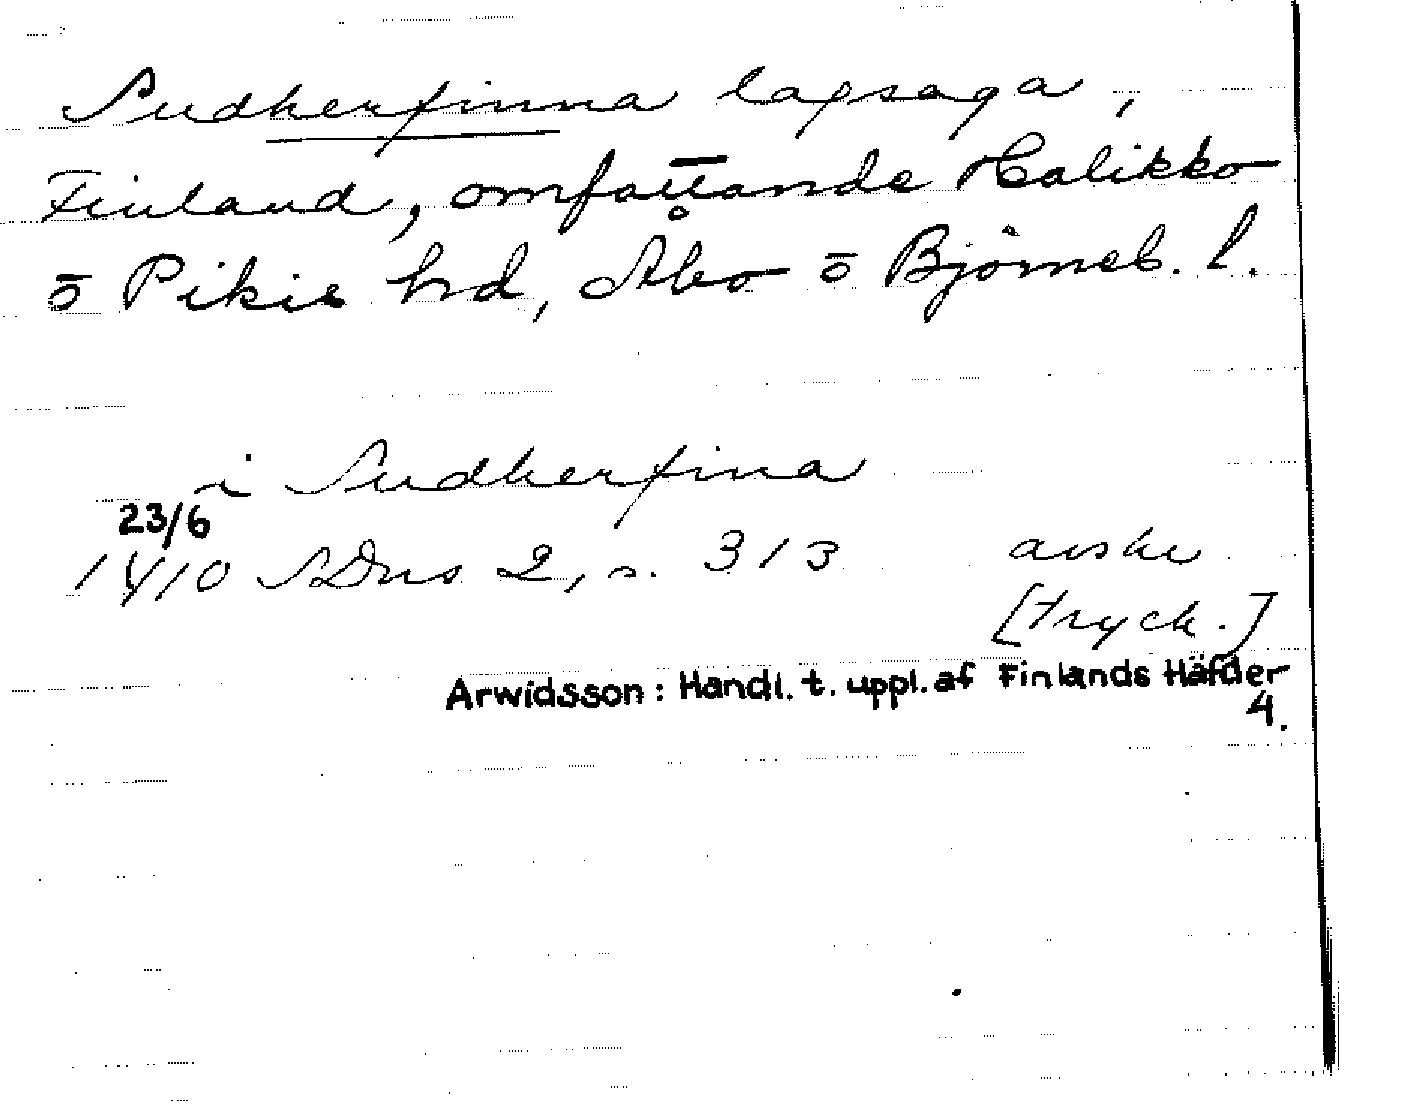 Sudherfinna lagsaga,
Finland, omfattande Halikko
o Pikie hd, Åbo o Björneb. l.
i Sudherfina
23/6
1410 SDns 2, s. 313 avskr
[tryck.]
Arwidsson: Handl. t. uppl. af Finlands Häfder
4.